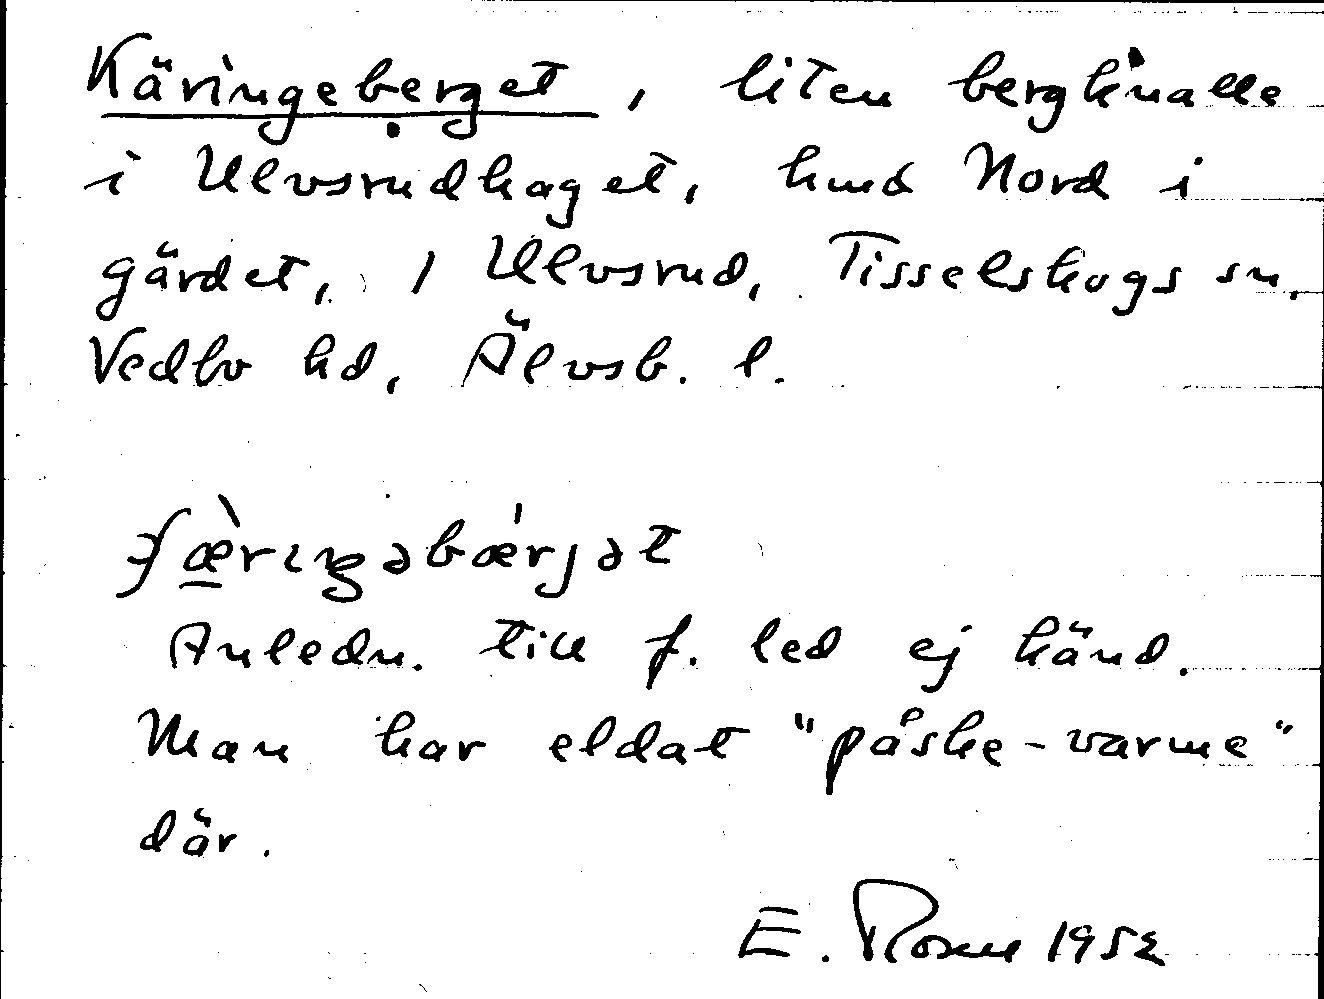 Käringeberget, liten bergknalle
i Ulvsrudhaget, hmd Nord i
gärdet, 1 Ulvsrud, Tisselskogs sn,
Vedbo hd, Älvsb. l.
Anledn. till f. led ej känd.
Man har eldat "påske-varme"
där.
E. Rosne 1952